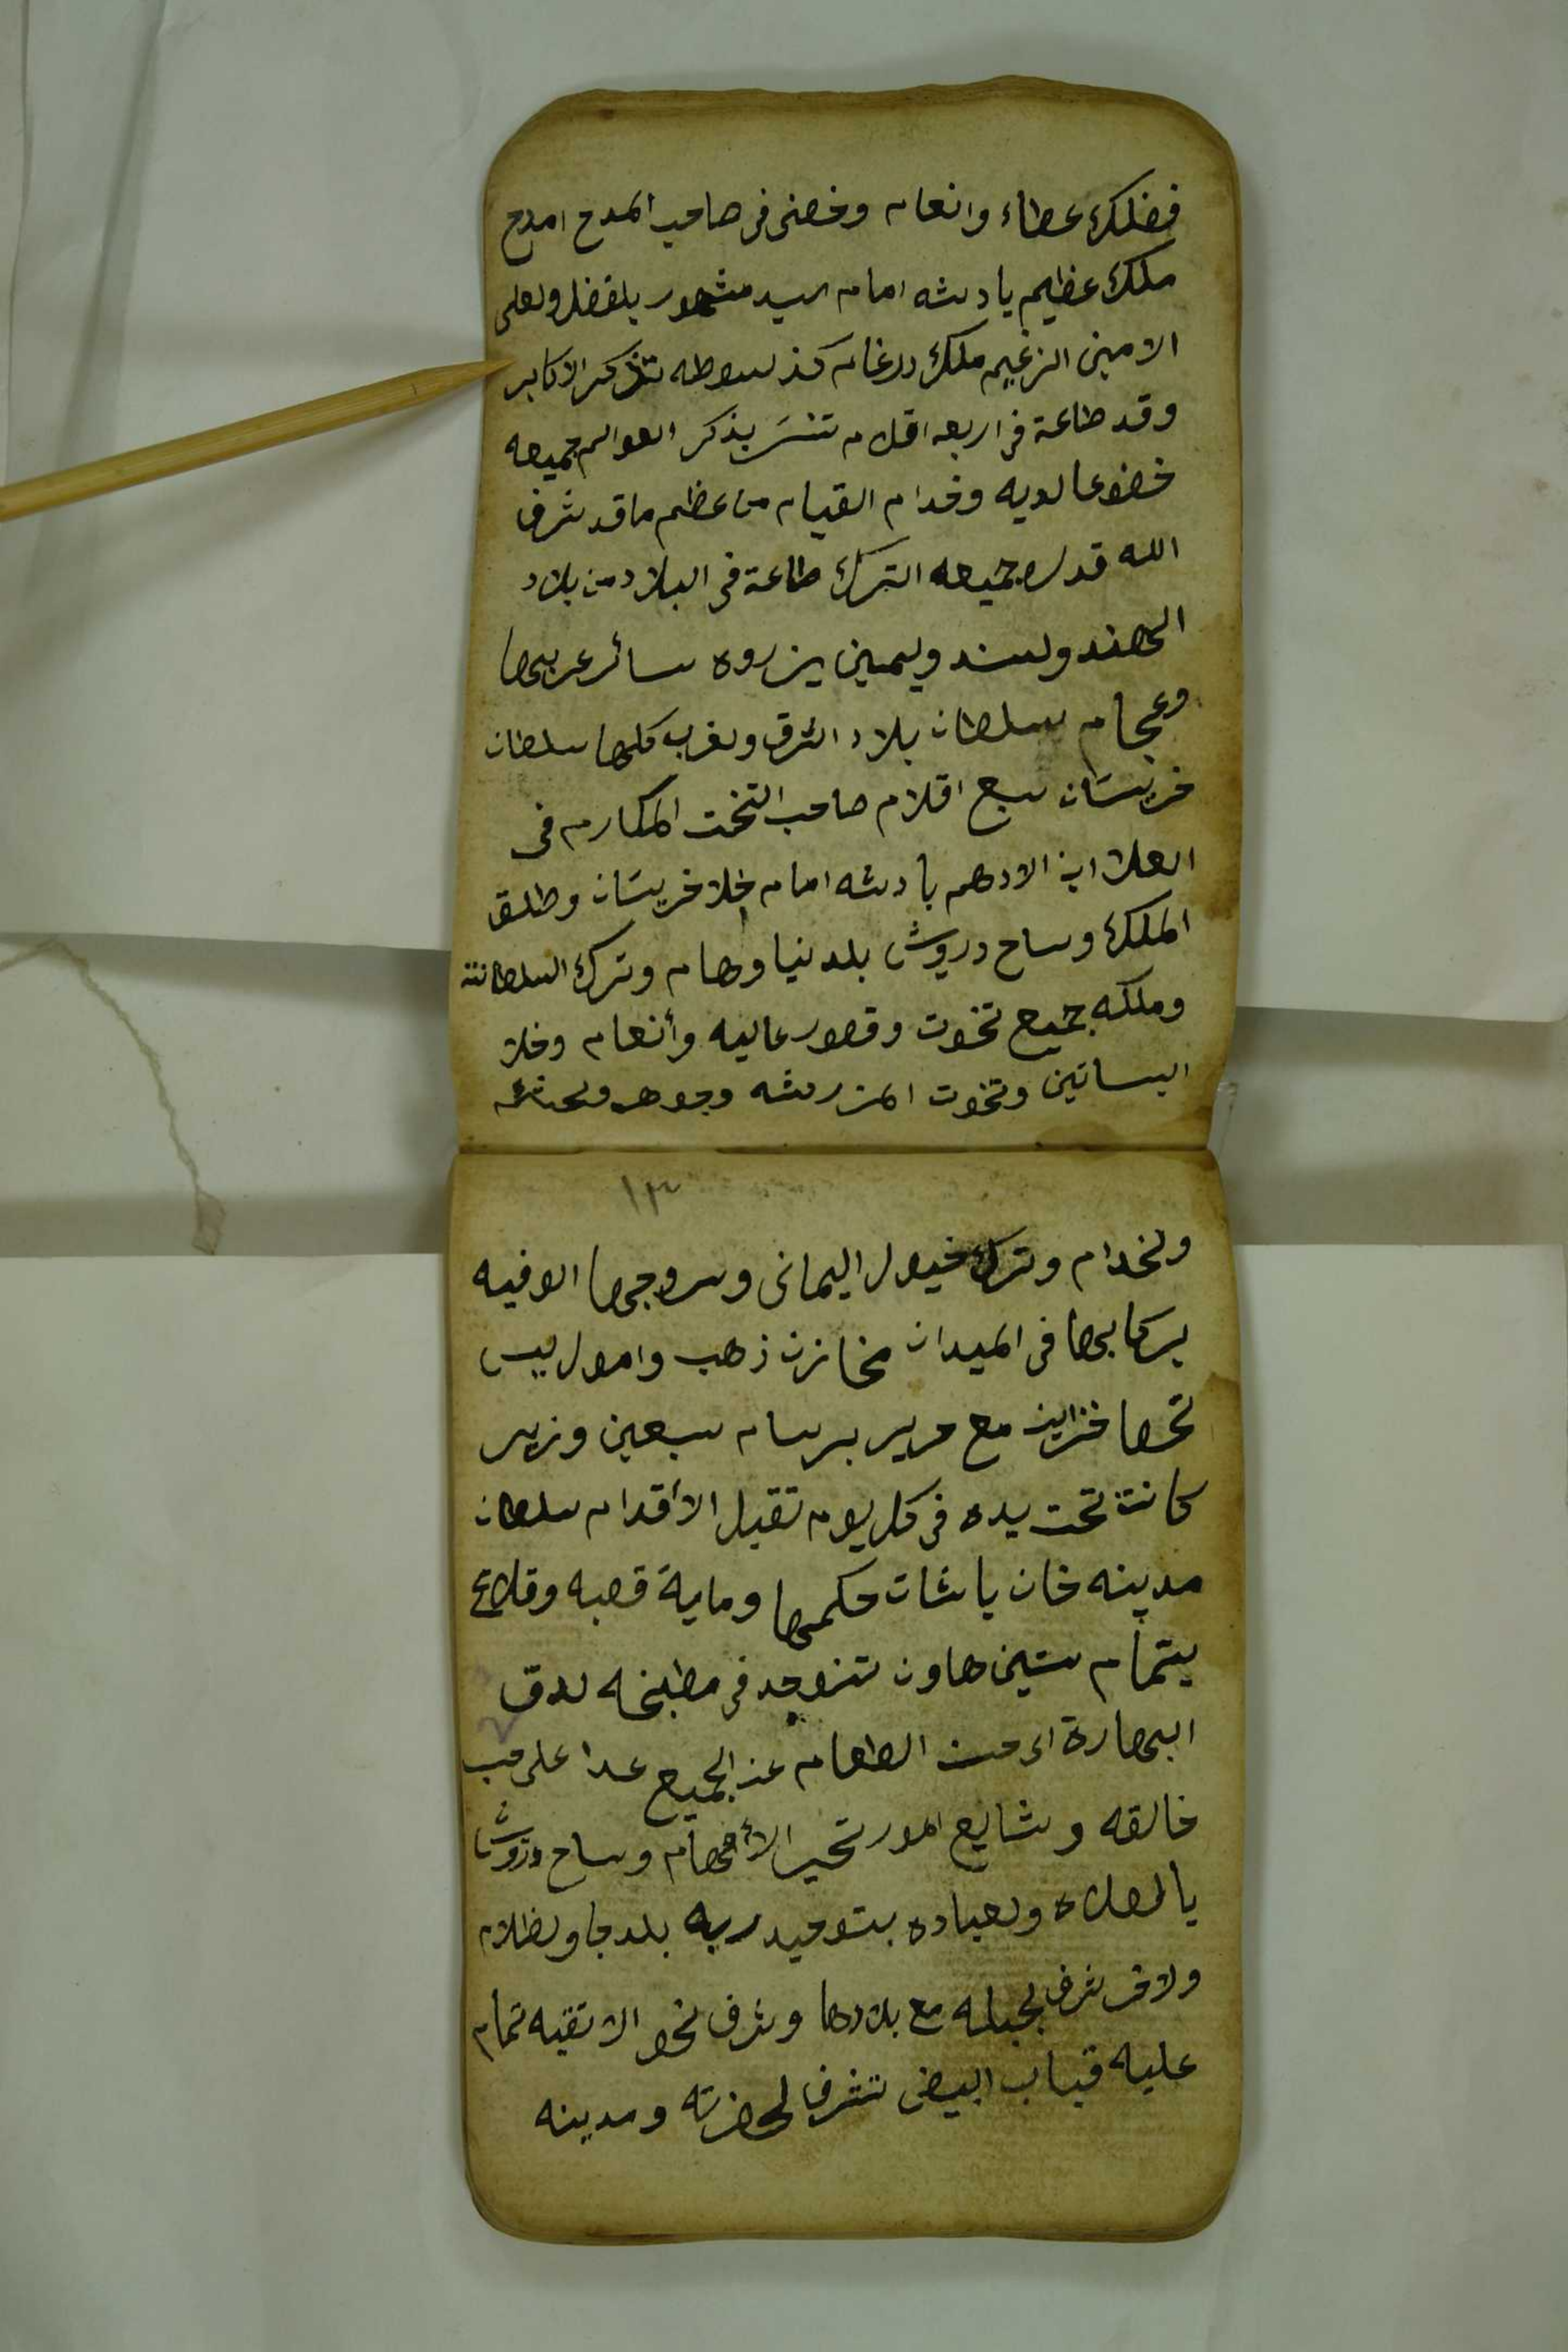 فضلك عطاء وانعام وخصنى فى صاحب المدح امدح
ملك عظيم يادشه امام السيد مشهور بلفضل ولعلى
الامين الزغيم ملك درغام كذ سوطه تذكر الاكابر
وقد طاعة فى اربعه اقلام تنسَر بذكر العوالم جميعه
خضوعا لديه وخدام القيام من عظم ما قد شرف
الله قدره جميعه الترك طاعة فى البلاد من بلاد
الهند ولسند ويمين يزروه سائر عربها
وعجام سلطان بلاد الشرق ولغرب كلها سلطان
خريستان سبع اقلام صاحب التخت المكارم فى
العلا ابن الادهم بادشه امام خلا خريستان وطلق
الملك وساح درويش بلدنيا وهام وترك السلطانته
وملكه جميع تخوت وقصور عاليه وأنعام وخلا
البساتين وتخوت المزركشه وجوهر
١٣
ولخدام وترك خيول اليمانى وسروجها الوفيه
بركابها فى الميدان مخازن ذهب وامول ليس
تحصا خزاين مع حرير برسام سبعين وزير
كانت تحت يده فى كل يوم تقبل الأقدام سلطان
مدينه خان باشات حكمها وماية قصبه وقلاع
بتمام ستين هاون تنوجد فى مطبخه لدق
البهارة الطعام عن الجميع عدا على حب
خالقه وشايع امور تحير الأفهام وساح درويش
بالصلاه ولعباده بتوحيد ربه بلدجا ولظلام
ولاقى شرف لجبله مع بلادها وشرف نحو الاتقيه تمام
عليه قباب البيض تشرف لحضرته ومدينه